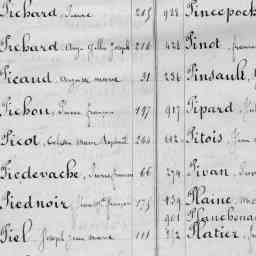 Pichard, Pierre 215 928 Pincepoch
Pichard, Ange Gilles Joseph 216 424 Pinot,
Picaud, Auguste marie 31 256 Pinsault,
Pichou, Pierre françois 197 917 Pipard,
Picot, Raphaël 244 112 Pitois, Jean
Piedevache, Pierre françois 66 274 Pivan,
Piednoir, françois 175 159 Plaine,
901 Planchena
Piel, Joseph Jean Marie 111 212 Platier,